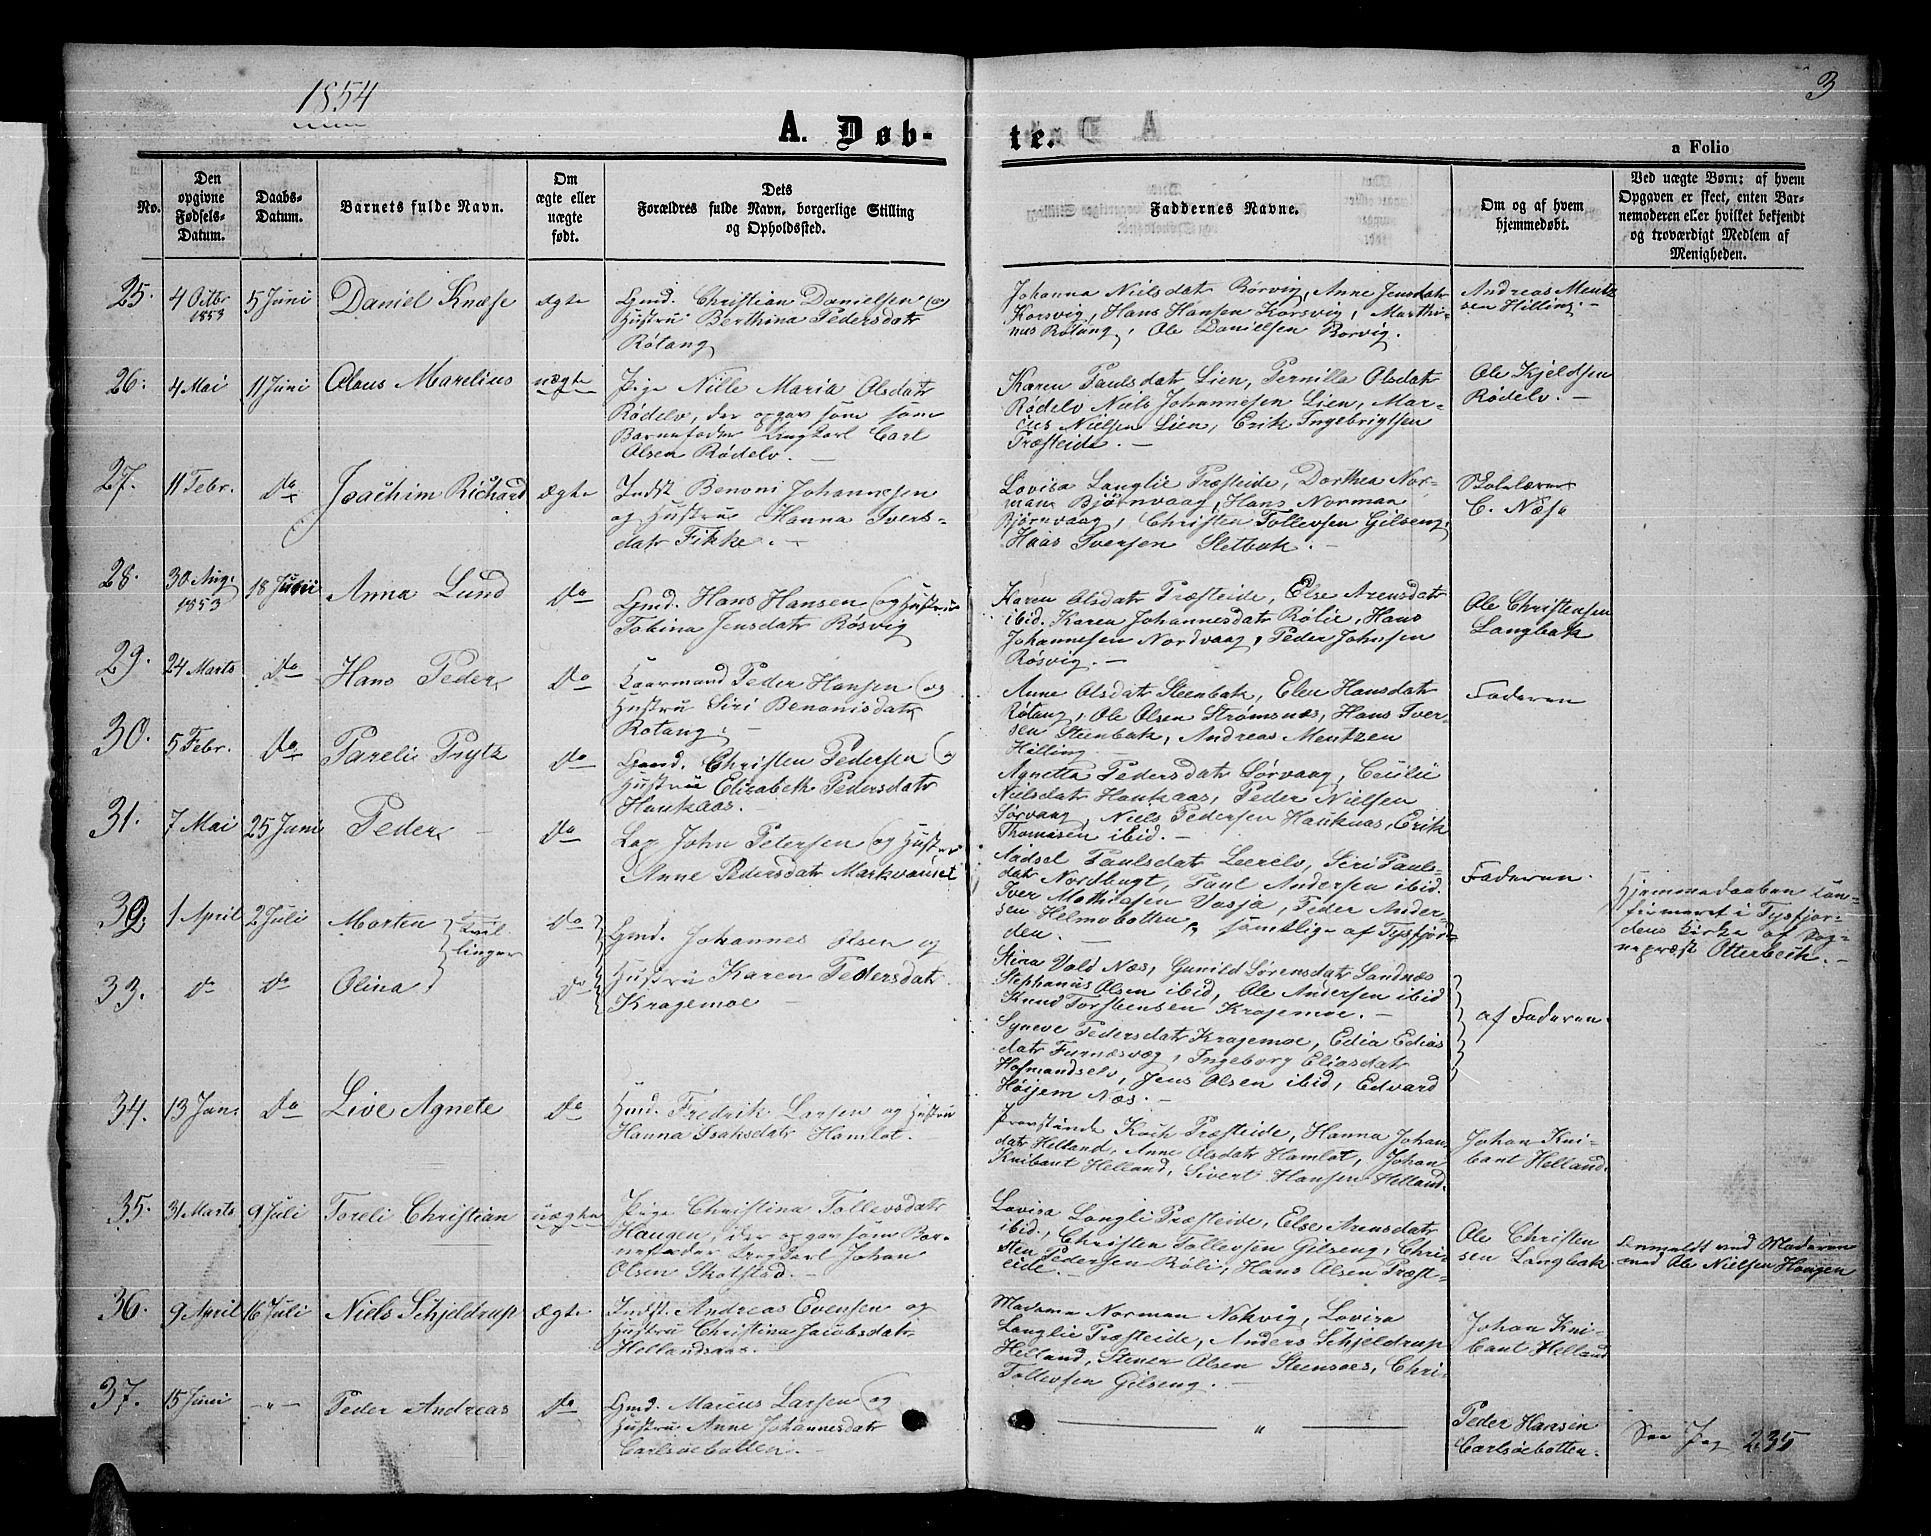 1854
3
A. Døb-
te.
a Folio
No.
Den
opgivne
Fødsels-
Datum.
Daabs-
Datum.
Barnets fulde Navn.
Om
ægte eller
uægte
født.
Dets
Forældres fulde Navn, borgerlige Stilling
og Opholdssted.
Faddernes Navne.
Om og af hvem
hjemmedøbt.
Ved uægte Børn: af hvem
Opgaven er skeet, enten Bar-
nemoderen eller hvilket bekjendt
og troværdigt Medlem af
Menigheden.
25. 4 Octbr 1853 5 Juni Daniel Knæse ægte
Gmd. Christian Danielsen og
Hustru Berthina Pedersdatr
Røtang
Johanna Nielsdatr Rørvig, Anne Jensdatr
Korsvig, Hans Hansen Korsvig, Marthi-
nus Røtang, Ole Danielsen Rorvig.
Andreas Mentz
sen Hilling.
26. 4 Mai 11 Juni Olaus Marelius uægte
Pige Nille Maria Olsdatr
Rødelv, der opgav som som
Barnefader Ungkarl Carl
Olsen Rødelv.
Karen Paulsdatr Lien, Pernilla Olsdatr
Rødelv Niels Johannesen Lien, Mar-
cus Nielsen Lien, Erik Ingebrigtsen
Præsteide.
Ole Kjeldsen
Rødelv.
27. 11 Febr. do Joachim Richard ægte
Indst Benoni Johannesen
og Hustru Hanna Ivers-
datr Fikke.
Lovisa Langlie Præsteide, Dorthea Nor-
man Bjørnvaag, Hans Norman
Bjørnvaag, Christen Tollevsen Gilseng,
Haas Iversen Sletbak.
Skolelærer
C. Næse
28. 30 Aug. 1853 18 Juni Anna Lund do
Gmd. Hans Hansen og Hustru
Tobina Jensdatr Røsvig
Karen Olsdatr Præsteide, Else Arensdatr
ibid. Karen Johannesdatr Rølie, Hans
Johannesen Nordvaag, Peder Johnsen
Røsvig.
Ole Christensen
Langbak
29. 24 Marts do Hans Peder do
Kaarmand Peder Hansen og
Hustru Siri Benonisdatr
Rotang.
Anne Olsdatr Steenbak, Elen Hansdatr
Røtang, Ole Olsen Strømsnes, Hans Iver-
sen Steenbak, Andreas Mentzen
Hilling
Faderen
30. 5 Febr. do Pareli Prytz do
Gmd. Christen Pedersen o
Hustrue Elisabeth Pedersdatr
Haukaas.
Agnetta Pedersdatr Sørvaag, Cecilie
Nielsdatr Haukaas, Peder Nielsen
Sørvaag, Niels Pedersen Haukaas, Erik
Thomasen ibid.
31. 7 Mai 25 Juni Peder do
Lap John Petersen og Hustru
Anne Pedersdatr Markvasset
Aadsel Paulsdatr Leerelv, Siri Pauls-
datr Nordbugt, Paul Andersen ibid.
Iver Mathiasen Vasja, Peder Ander-
sen Helmobotten, samtlige af Tysfjor-
den.
Faderen.
Hjemmedaaben con-
firmeret i Tysfjor-
dens Kirke af Sog-
nepræst Otterbech.
32. 1 April 2 Juli Morten Tvil-
linger do
Gmd. Johannes Olsen og
Hustru Karen Pedersdatr
Kragemoe
Stina Vold Næs, Gunild Sørensdatr Sandnæs
Stephanus Olsen ibid, Ole Andersen ibid
Knud Torstensen Kragemoe.
af Faderen.
33. do do Olina do
Syneve Pedersdatr Kragemoe, Edia Edias
datr Furnæsvæg, Ingeborg Eliasdatr
Hofmandselv, Jens Olsen ibid, Edvard
Høijem Næs.
34. 13 Jan. do Live Agnete do
Hmd. Fredrik Larsen og Hustru
Hanna Isaksdatr Hamlot.
Provstinde Koch Præsteide, Hanna Johan
datr Helland, Anne Olsdatr Hamlot, Johan
Knibant Helland, Sivert Hansen Helland.
Johan Kni-
bant Helland.
35. 31 Marts 9 Juli Toreli Christian uægte
Pige Christina Tollevsdatr
Haugen, der opgav som Bar-
nefader Ungkarl Johan
Olsen Skotstad.
Lovisa Langli Præsteide, Else Arensdatr
ibid., Christen Tollevsen Gilseng, Chri-
sten Pedersen Røli, Hans Olsen Præst-
eide.
Ole Christen
sen Langbak
Anmeldt ved Moderen
med Ole Nielsen Haugen
36. 9 April 16 Juli Niels Schjeldrup ægte
Indst. Andreas Evensen og
Hustru Christina Jacobsdatr
Hellandsaas.
Madame Norman Nokvig, Lovisa
Langlie Præsteide, Anders Schjeldrup
Helland, Stener Olsen Steensoes, Chri-
Tollevsen Gilseng.
Johan Kni-
bant Helland
37. 15 Juni -"- Peder Andreas do
Gmd. Marcus Larsen og
Hustru Anne Johannesdatr
Carlsøebotten.
"
Peder Hansen
Carlsøebotten.
See Pag 235